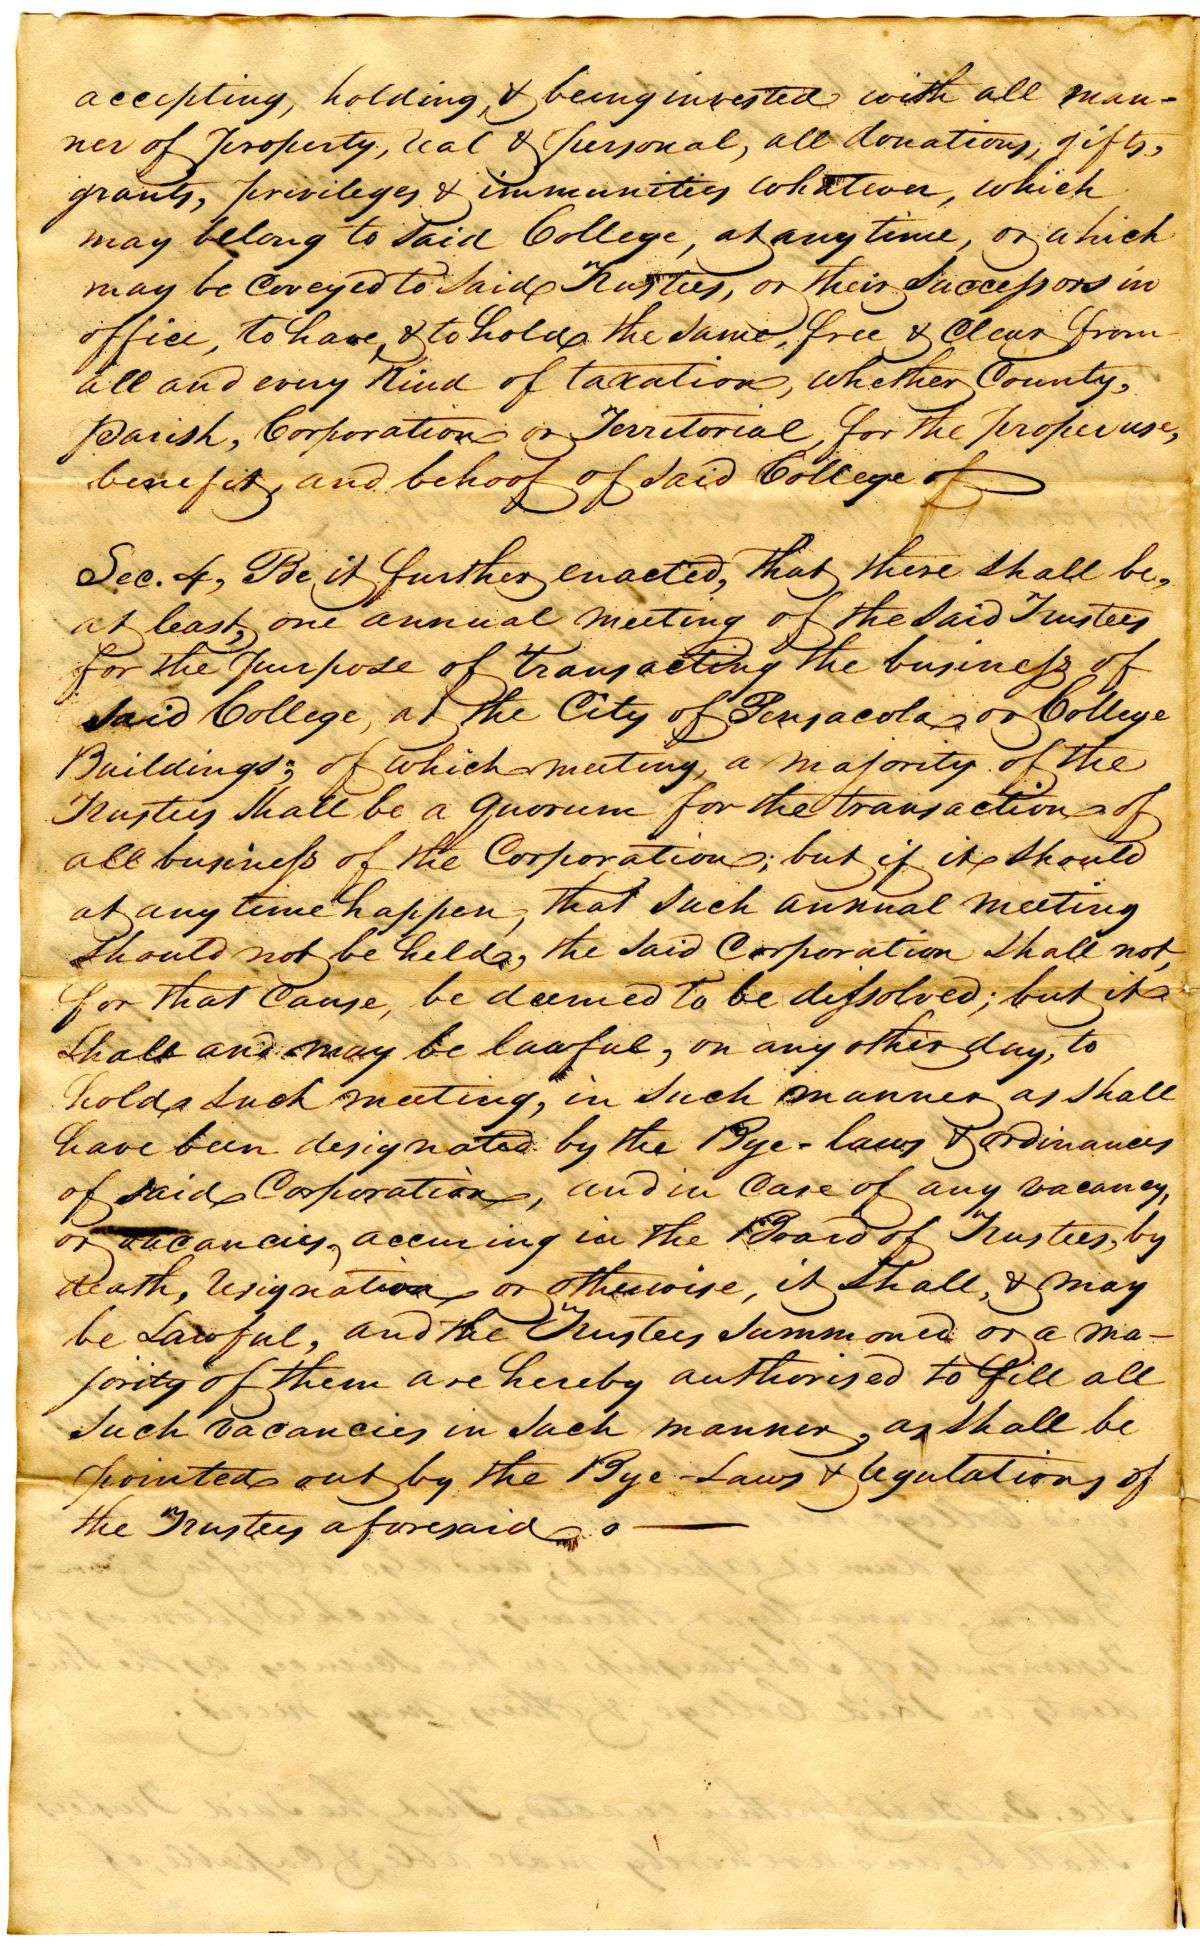 accepting, holding, & being invested with all man-
ner of property, real & personal, all donations, gifts,
grants, privileges & immunities whatever, which
may belong to said College, at any time, or which
may be coveyed to said Trustees, or their Successors in
office, to have, & to hold the same, free & clear from
all and every kind of taxation, whether County,
Parish, Corporation or Territorial, for the proper use,
benefit, and behoof of said College of
Sec. 4, Be it further enacted, That there shall be,
at least, one annual meeting of the said Trustees
for the purpose of transacting the business of
said College, at the City of Pensacola or College
Buildings; of which meeting, a majority of the
Trustees shall be a quorum for the transaction of
all business of the Corporation; but if it should
at any time happen, that such annual meeting
should not be held, the said Corporation shall not,
for that cause, be deemed to be dissolved; but it
shall and may be lawful, on any other day, to
hold such meeting, in such manner as shall
have been designated by the Bye-laws & ordinances
of said Corporation, and in case of any vacancy,
or vacancies, accuring in the Board of Trustees, by
death, resignation or otherwise, it shall, & may
be Lawful, and the Trustees summoned or a ma-
jority of them are hereby authorised to fill all
such vacancies in such manner, as shall be
pointed out by the Bye-Laws & regulations of
the Trustees aforesaid.